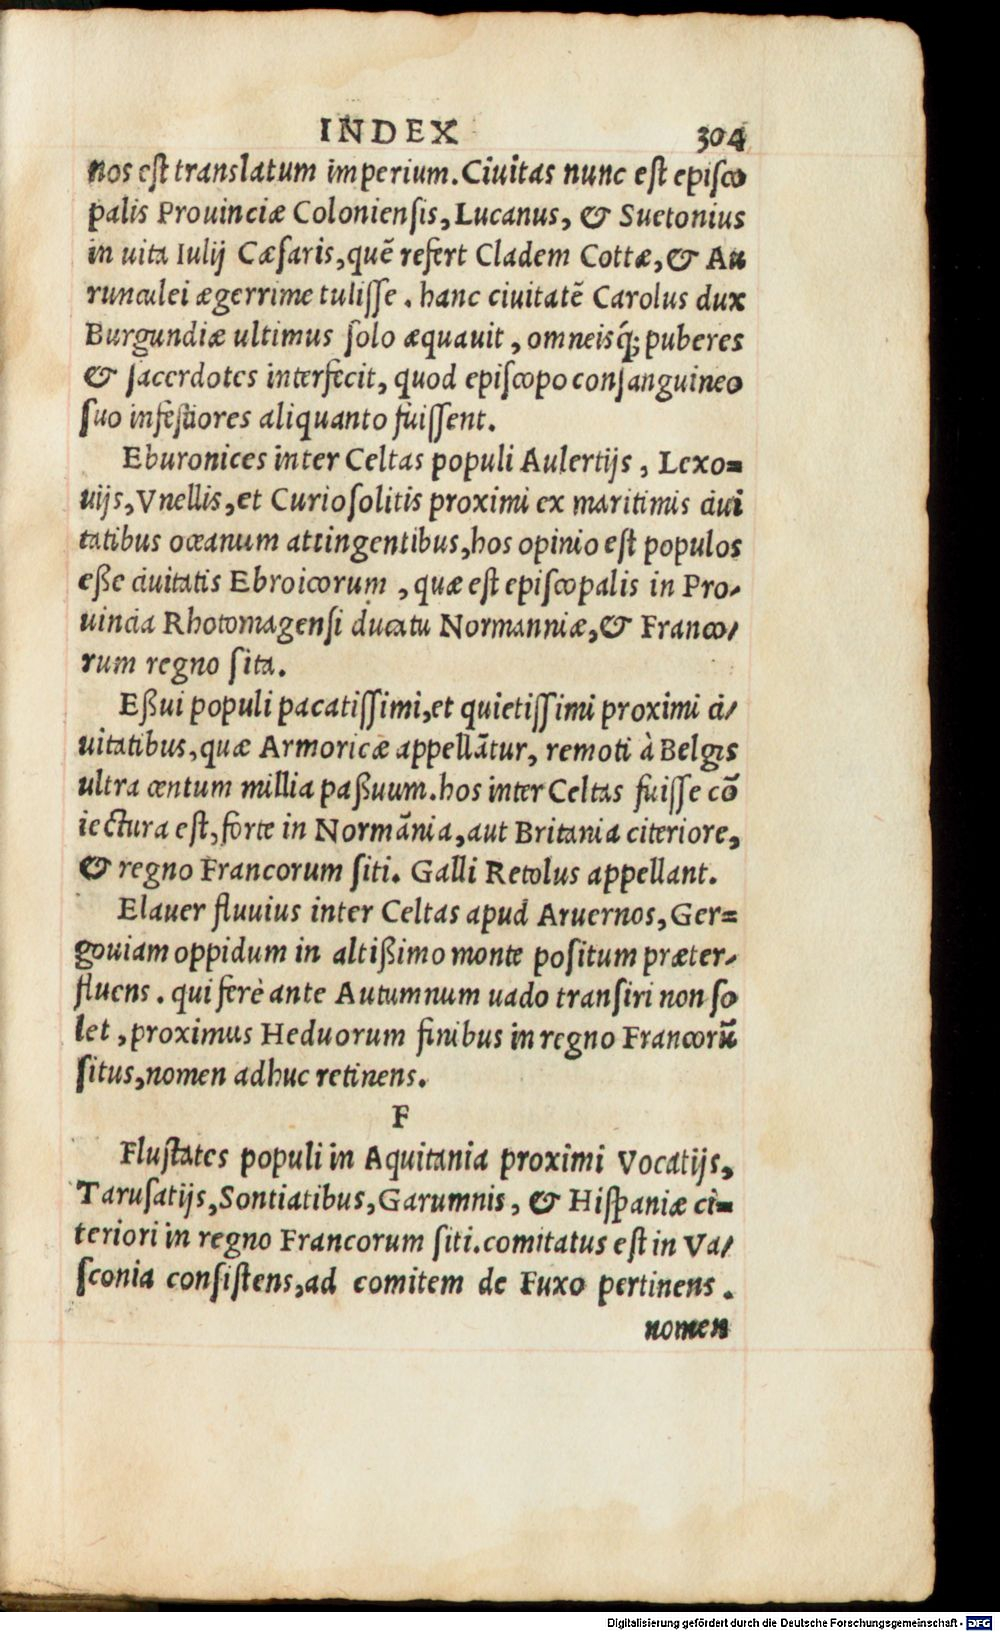 INDEX 304
nos est translatum imperium. Ciuitas nunc est episco
palis Prouinciæ Coloniensis, Lucanus, & Suetonius
in uita Iulij Cæsaris, quē refert Cladem Cottæ, & Au
runculei ægerrime tulisse. hanc ciuitatē Carolus dux
Burgundiæ ultimus solo æquauit, omneisq́; puberes
& sacerdotes interfecit, quod episcopo consanguineo
suo infestiores aliquanto fuissent.
Eburonices inter Celtas populi Aulertijs, Lexo=
uijs, Vnellis, et Curiosolitis proximi ex maritimis ciui
tatibus oceanum attingentibus, hos opinio est populos
eße ciuitatis Ebroicorum, quæ est episcopalis in Pro-
uincia Rhotomagensi ducatu Normanniæ, & Franco-
rum regno sita.
Eßui populi pacatissimi, et quietissimi proximi ci-
uitatibus, quæ Armoricæ appellātur, remoti à Belgis
ultra centum millia paßuum. hos inter Celtas fuisse cō
iectura est, forte in Normānia, aut Britania citeriore,
& regno Francorum siti. Galli Retolus appellant.
Elauer fluuius inter Celtas apud Aruernos, Ger=
gouiam oppidum in altißimo monte positum præter-
fluens. qui ferè ante Autumnum uado transiri non so
let, proximus Heduorum finibus in regno Francorū
situs, nomen adhuc retinens.
F
Flustates populi in Aquitania proximi Vocatijs,
Tarusatijs, Sontiatibus, Garumnis, & Hispaniæ ci=
teriori in regno Francorum siti. comitatus est in Va-
sconia consistens, ad comitem de Fuxo pertinens.
nomen
Digitalisierung gefördert durch die Deutsche Forschungsgemeinschaft - DFG